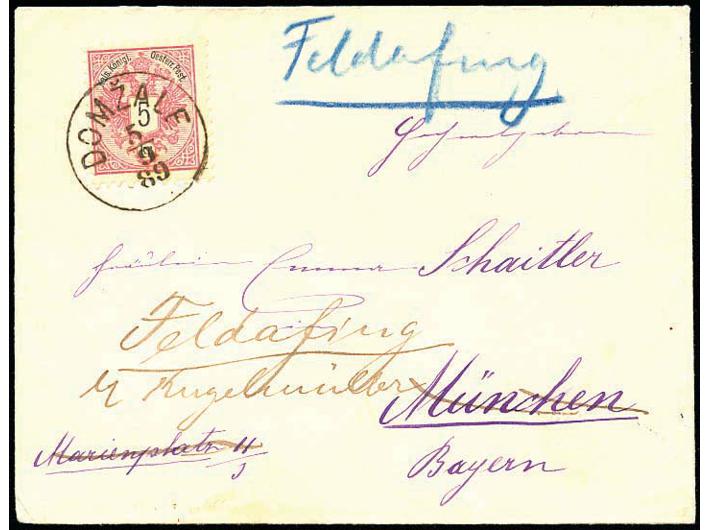 Feldafing
Kais. Königl. Oesterr. Post.
5
DOMŽALE
5
9
89
Hochwohlgeboren
Fräulein Emma Schaitler
Feldafing
Kugelmüller
München
Marienplatz 11/3
Bayern